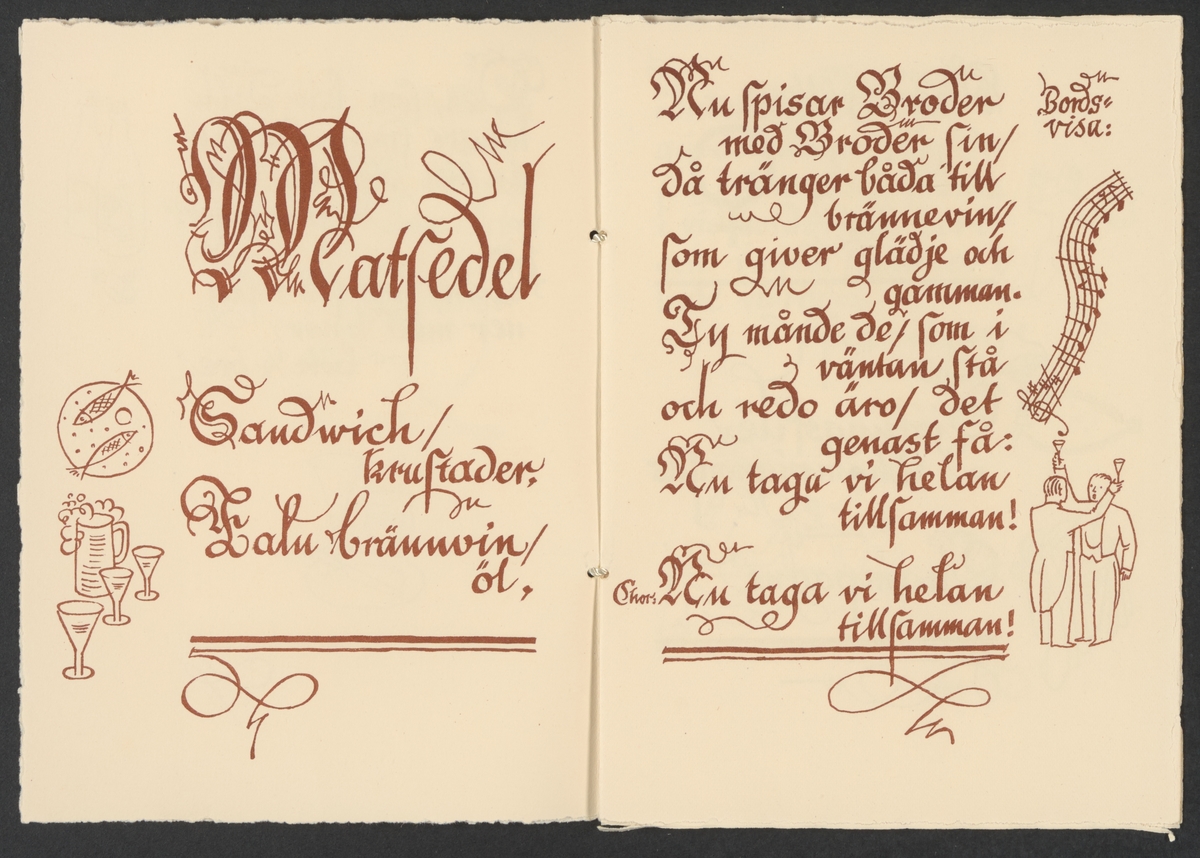 Matsedel
Sandwich/
krustader,
Falu brännvin/
öl,
Nu spisar Broder
med Broder sin/
då tränger båda till
brännevin//
som giver glädje och
gamman.
Ty månde de/ som i
väntan stå
och redo äro/ det
genast få:
Nu taga vi helan
tillsamman!
Chor: Nu taga vi helan
tillsamman!
Bords-
visa: